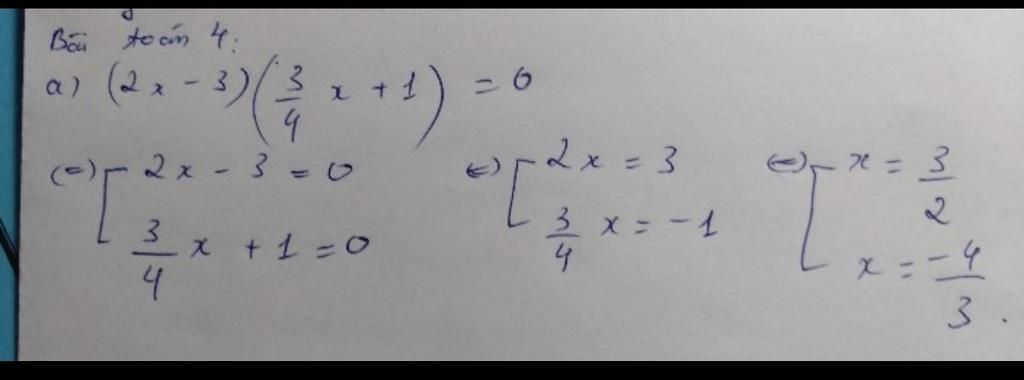 Bài toán 4:
a) (2x - 3)(3/4 x + 1) = 0
(=) [ 2x - 3 = 0
3/4 x + 1 = 0
(=) [ 2x = 3
3/4 x = -1
(=) [ x = 3/2
x = -4/3.